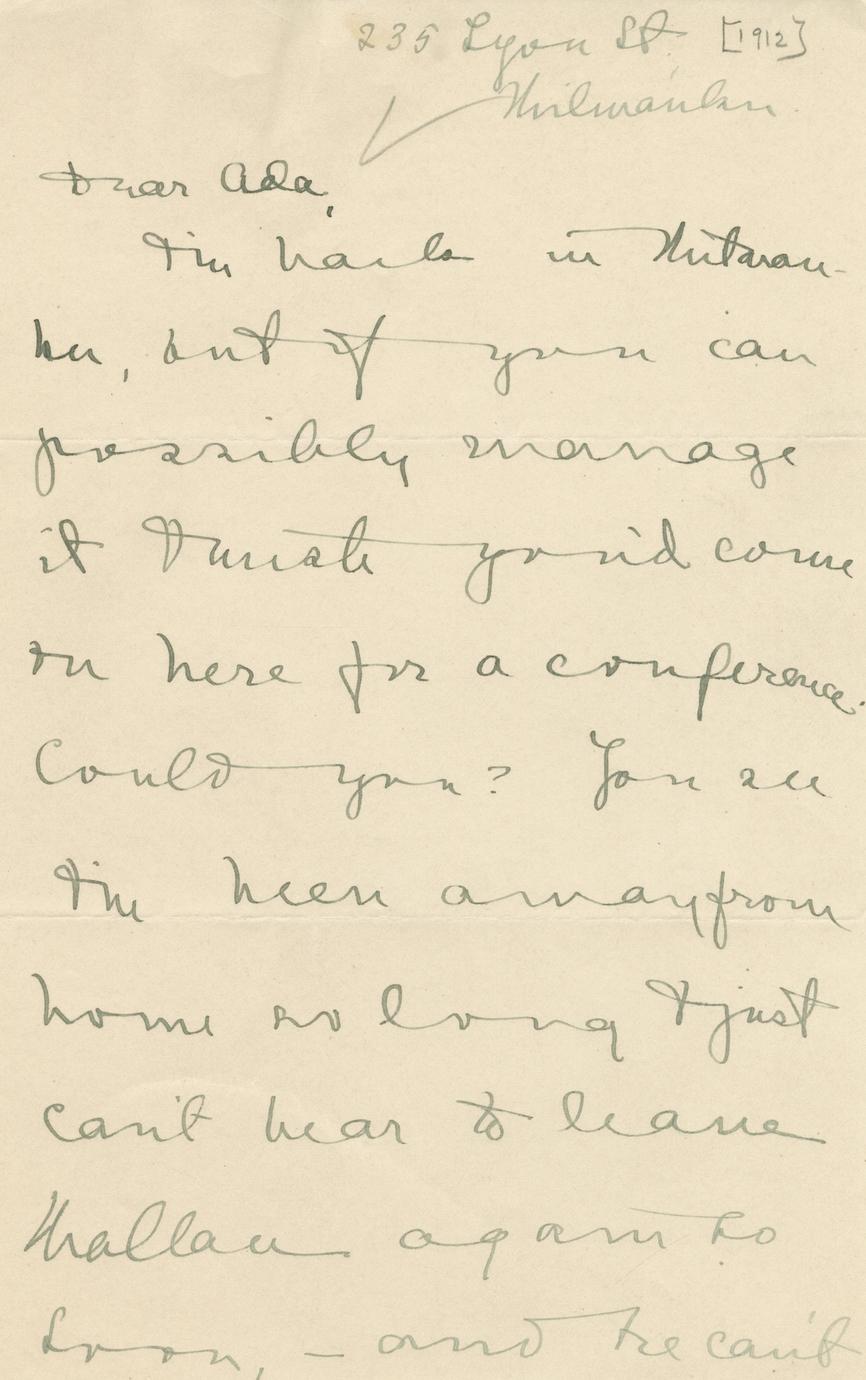 235 Lyon St. [1912]
Milwaukee.
Dear Ada,
I'm back in Milwau-
kee, but if you can
possibly manage
it I wish you'd come
on here for a conference.
Could you? You see
I'm been away from
home so long I just
can't bear to leave
again so
soon, – and he can't